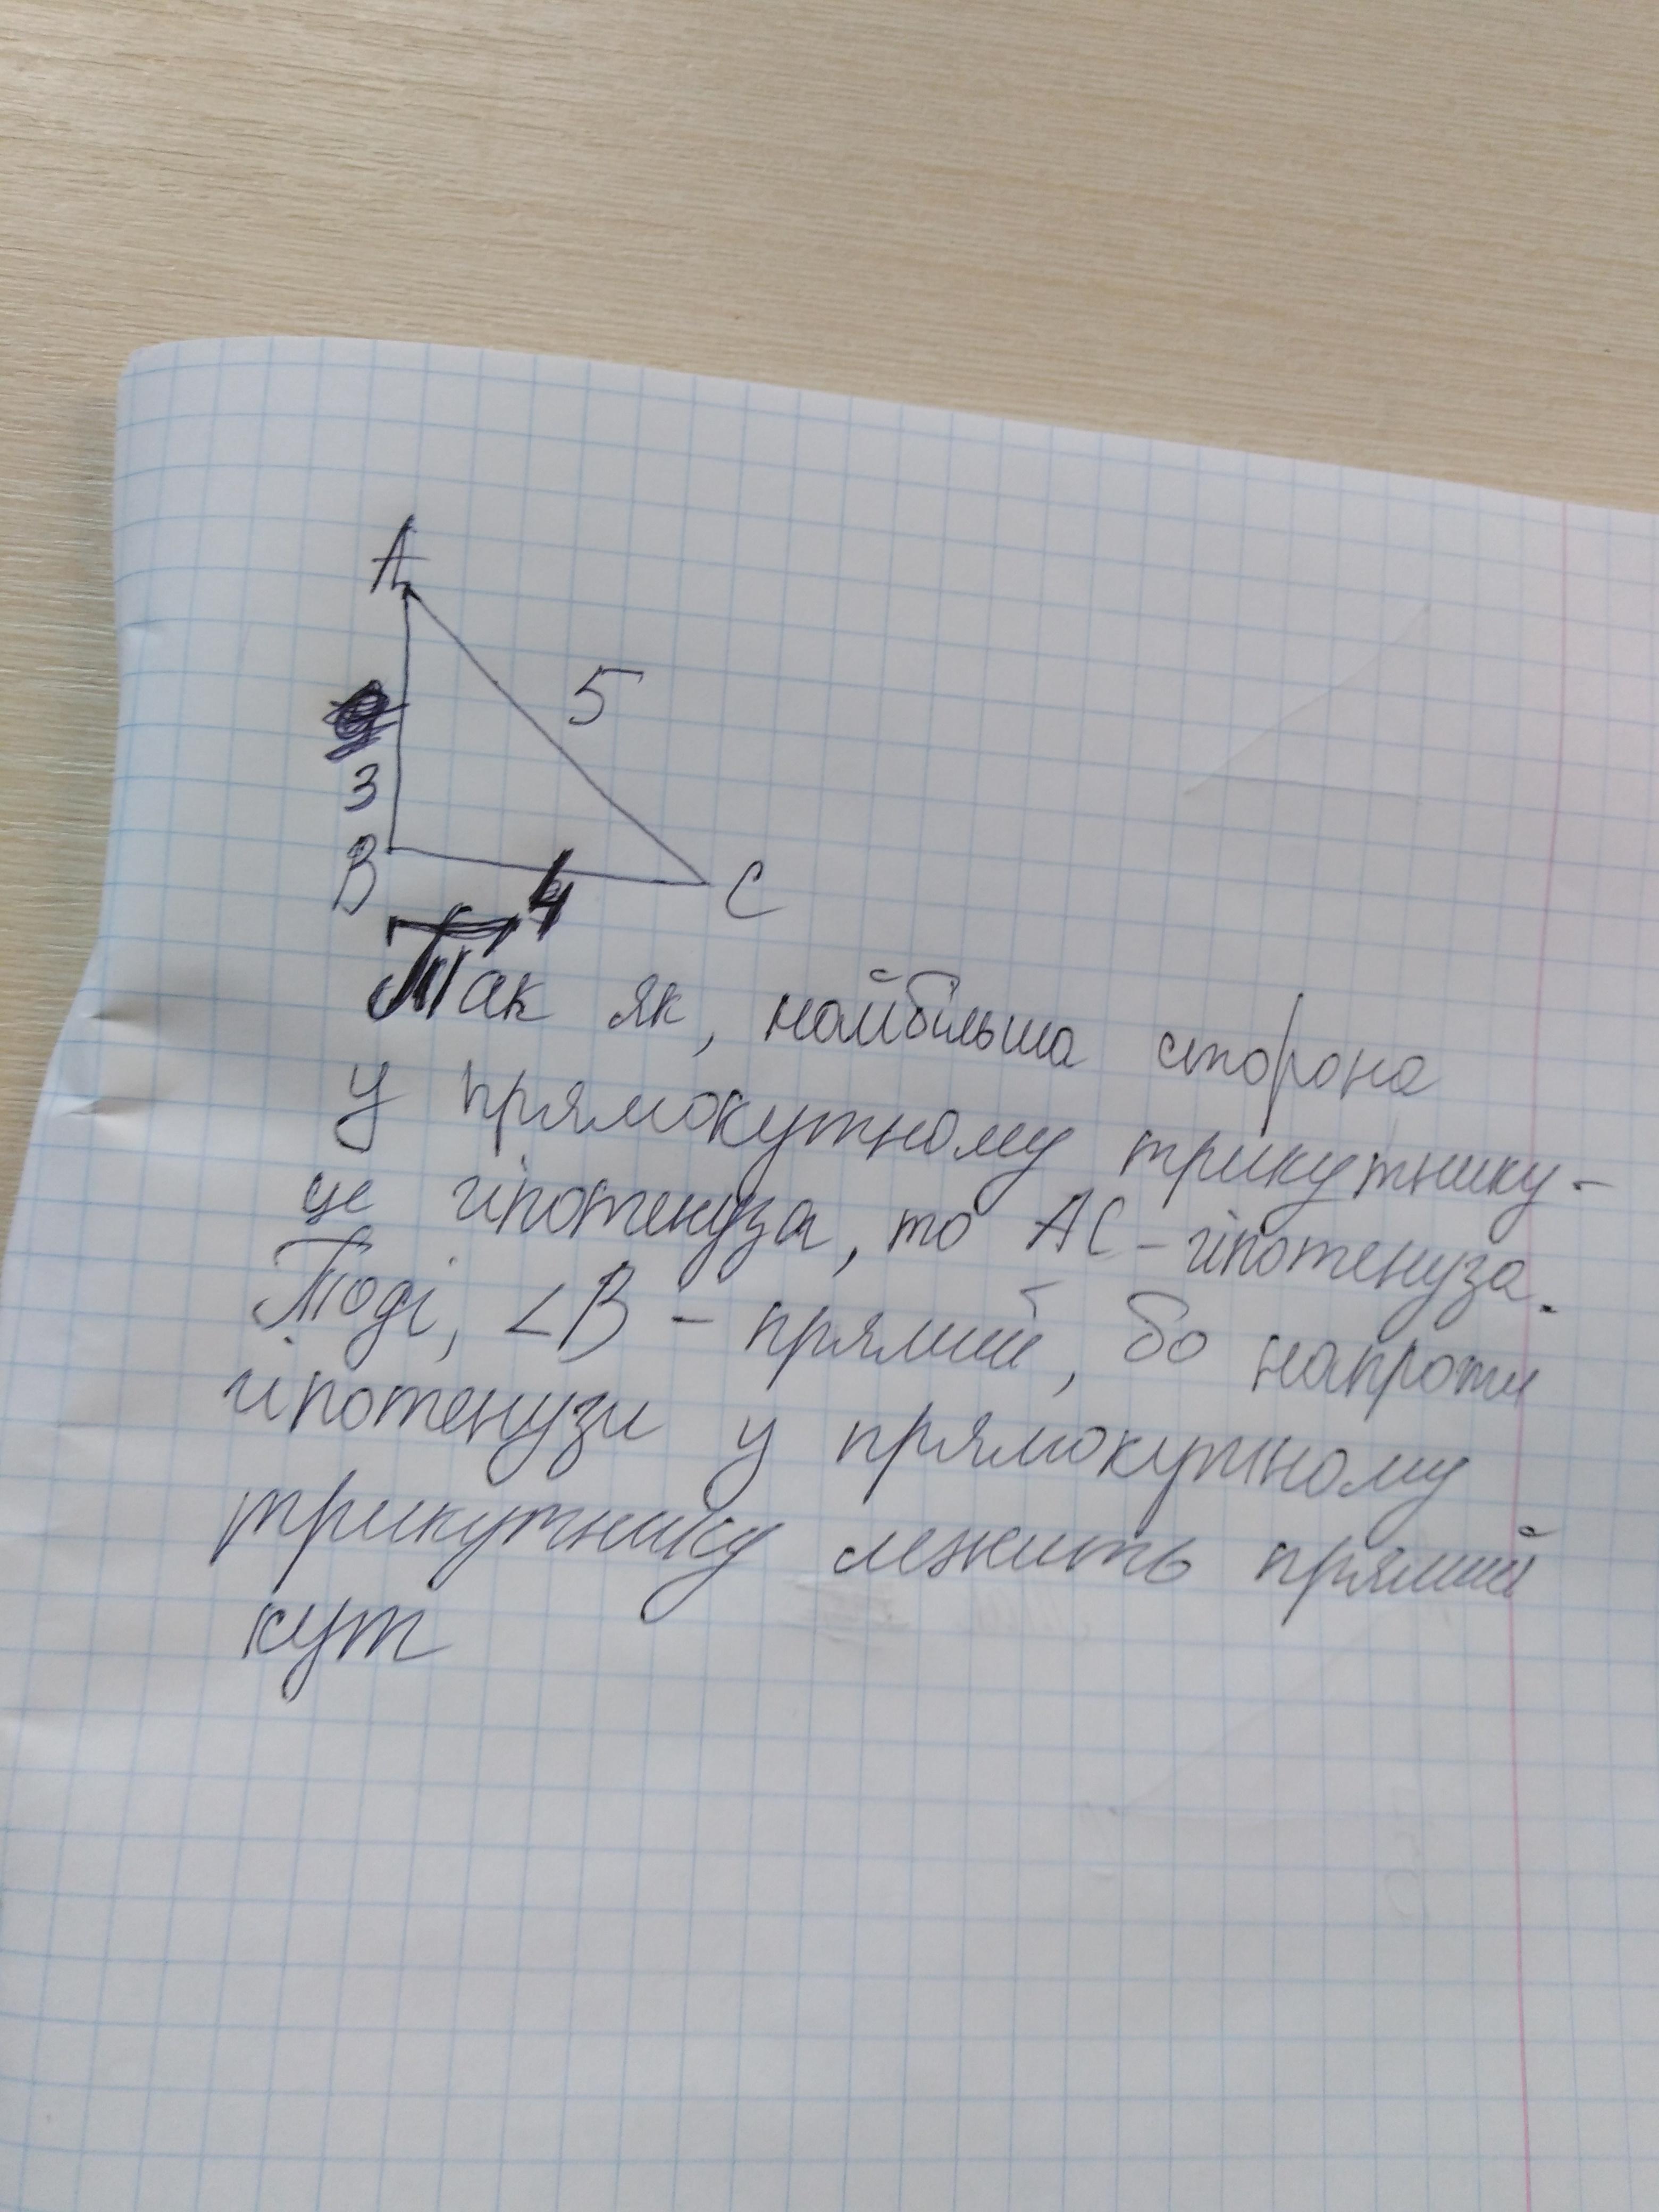 A
5
3
B
4
C
Так як, найбільша сторона
у прямокутному трикутнику -
це гіпотенуза, то AC - гіпотенуза.
Тоді, ∠B - прямий, бо напроти
гіпотенузи у прямокутному
трикутнику лежить прямий
кут